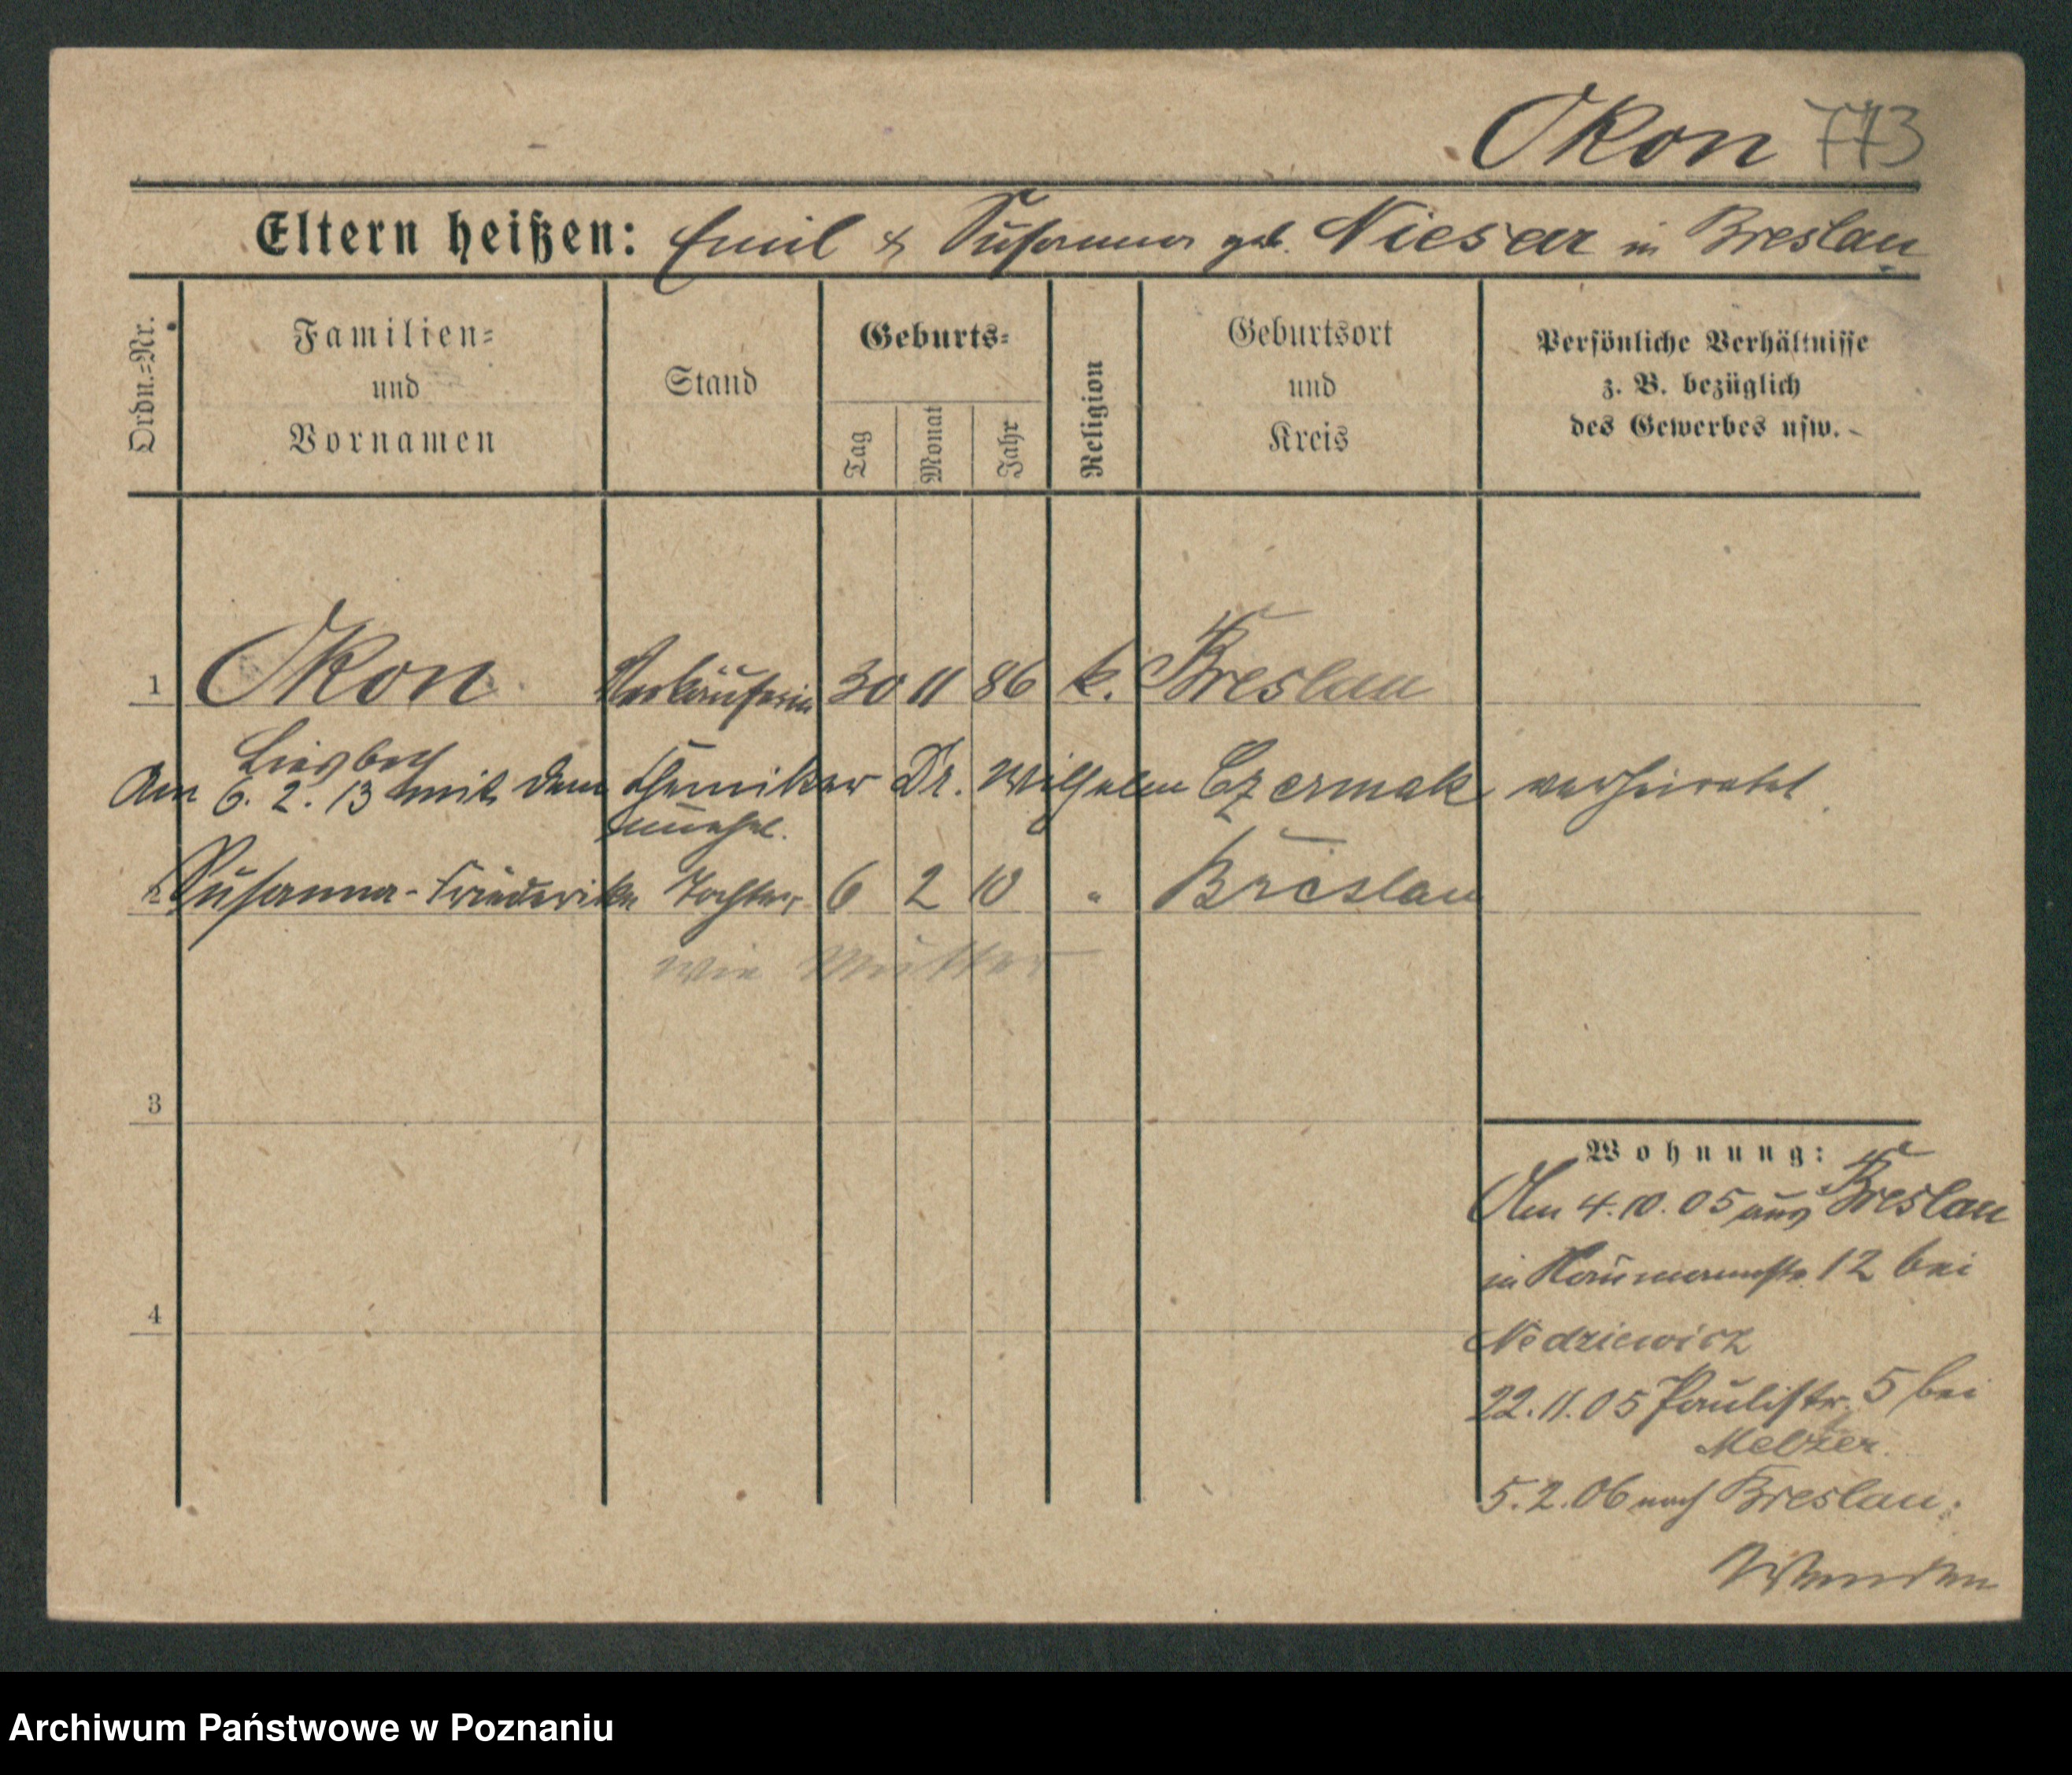 Okon 773
Eltern heißen: Emil & Susanna geb. Niesar in Breslau
Ordn.-Nr.
Familien-
und
Vornamen
Stand
Geburts-
Tag
Monat
Jahr
Religion
Geburtsort
und
Kreis
Persönliche Verhältnisse
z. B. bezüglich
des Gewerbes usw.
1 Okon Verkäuferin 30 11 86 k. Breslau
Liesbeth
Am 6. 2. 13 mit dem Chemiker Dr. Wilhelm Czermak verheiratet.
unehel.
2 Susanna-Friederike Tochter 6 2 10 " Breslau
wie Mutter
3
4
Wohnung:
Am 4.10.05 aus Breslau
in Naumannstr. 12 bei
Nedziewicz
22.11.05 Paulistr. 5 bei
Melzer.
5.2.06 nach Breslau.
Wenden
Archiwum Państwowe w Poznaniu